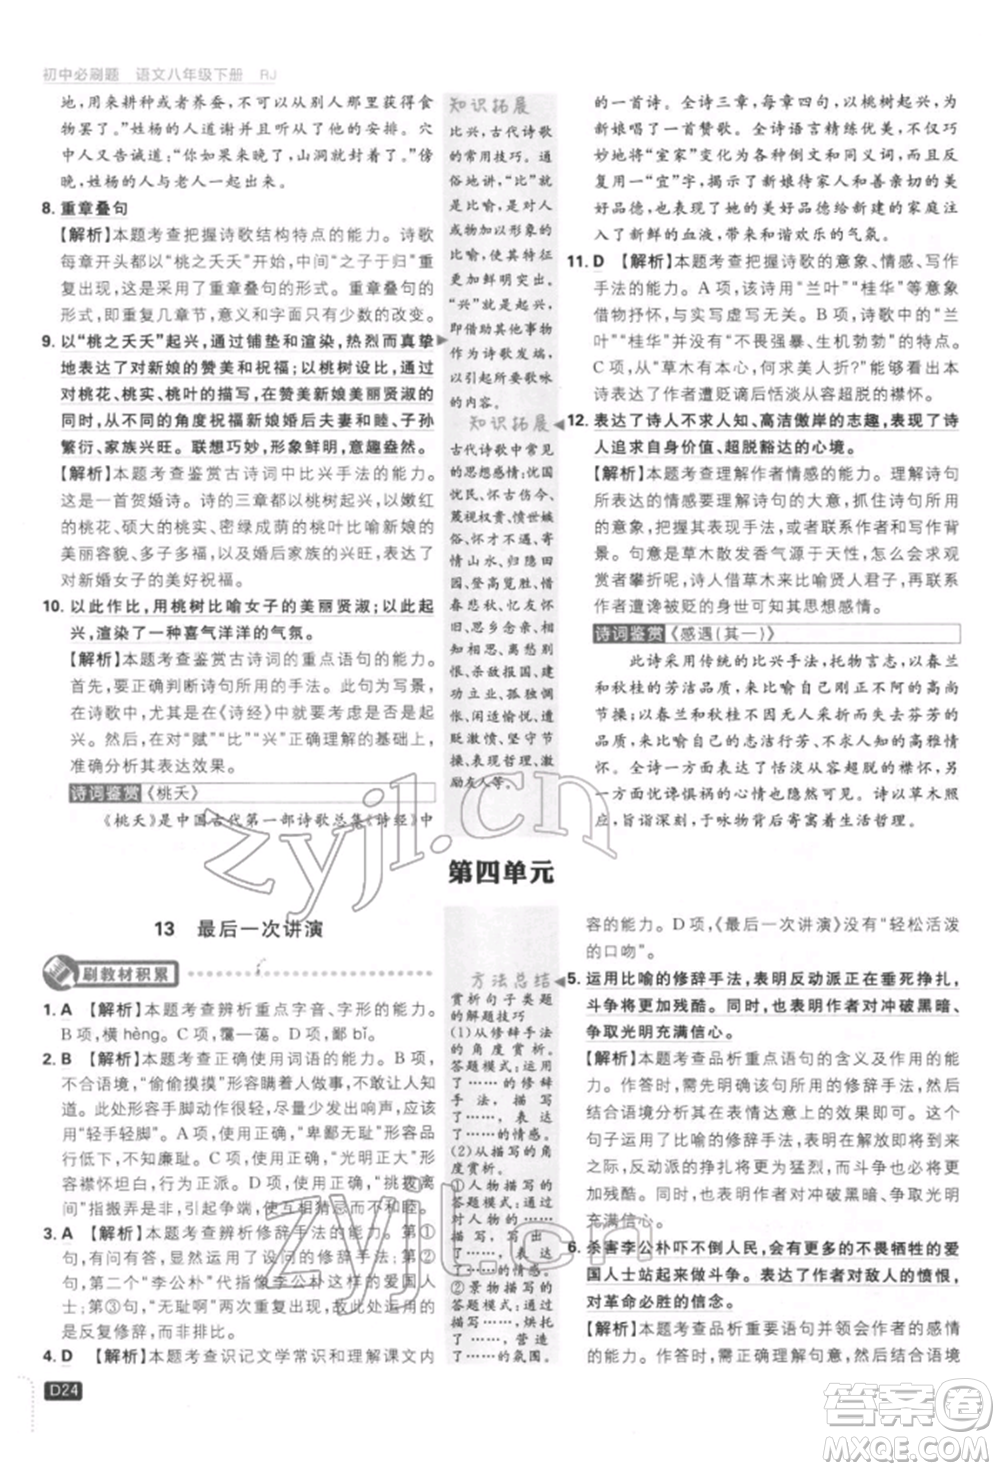 初中必刷题 语文八年级下册 RJ
地，用来耕种或者养蚕，可以从别人那里交换衣
物罢了。”姓杨的人道谢并听从了他的安排。穴
中人又告诫道：“等你回来晚了，山洞就封着了。”傍
晚，姓杨的人与老人一起出来。
8. 重章叠句
【解析】本题考查把握诗歌结构特点的能力。诗歌
每章开头都以“桃之夭夭”开始，中间“之子于归”重
复出现，这是运用了重章叠句的形式。重章叠句的
形式，即重复几章节，意义和字面只有少量的改变。
9. 以“桃之夭夭”起兴，通过铺垫和渲染，热烈而真挚
地表达了对新娘的赞美和祝福；以桃树比兴，通过
对桃花、桃实、桃叶的描写，在赞美新娘美丽贤淑的
同时，从不同的角度祝福新娘婚后夫妻和睦、子孙
繁衍、家族兴旺。联想巧妙，形象鲜明，意趣盎然。
【解析】本题考查鉴赏古诗词中比兴手法的能力。
这是一首贺婚诗。诗的三章都以桃树起兴，以嫩红
的桃花、硕大的桃实、密绿成荫的桃叶比喻新娘的
美丽容貌、多子多福，以及婚后家族的兴旺，表达了
对新婚女子的美好祝福。
10. 以此作比，用桃树比喻女子的美丽贤淑；以此起
兴，渲染了一种喜气洋洋的气氛。
【解析】本题考查鉴赏古诗词的重点语句的能力。
首先，要正确判断诗句所用的手法。此句为写景，
在诗歌中，尤其是在《诗经》中，景物描写多是起兴
句。然后，在对“赋”“比”“兴”正确理解的基础上，
准确分析其表达效果。
诗词鉴赏 《桃夭》
《桃夭》是中国古代第一部诗歌总集《诗经》中
知识拓展
比兴，古代诗歌
的常用技巧。通
俗地讲，“比”就
是比喻，是对人
或物加以形象的
比喻，使其特征
更加鲜明突出。
“兴”就是起兴，
即借助其他事物
作为诗歌发端，
以引起所要歌咏
的内容。
知识拓展
古代诗歌中常见
的思想感情：忧国
忧民、怀古伤今、
蔑视权贵、愤世嫉
俗、怀才不遇、寄
情山水、归隐田
园、登高览胜、惜
春悲秋、忆友怀
旧、思乡念亲、相
思别恨、离愁别
恨、杀敌报国、建
功立业、孤独惆
怅、闲适愉悦、贬
迁激愤、坚守节
操、表现哲理、激
励友人等。
的一首诗。全诗三章，每章四句，以桃树起兴，为
新娘唱了一首赞歌。全诗语言精练优美，不仅巧
妙地将“室家”变化为各种倒文和同义词，而且
反复用一“宜”字，揭示了新娘待家人和善亲切的美
好品德，反映了她的美好品德给新建的家庭注
入了新鲜的血液，带来和谐欢乐的气氛。
11. D 【解析】本题考查把握诗歌的意象、情感、写作
手法的能力。A项，该诗用“兰叶”“桂华”等意象
借物抒怀，与实写虚写无关。B项，本诗中的“兰
叶”“桂华”特点不是不畏强暴、生机勃勃的气质。
C项，从“草木有本心，何求美人折？”看，体现出本
诗表达了作者遭贬谪后恬淡从容超脱的襟怀。
12. 表达了诗人不求人知、高洁傲岸的志趣，表现了诗
人追求自身价值、超脱豁达的心境。
【解析】本题考查理解作者情感的能力。理解诗句
所表达的情感要先理解诗句的大意，抓住诗句所用
的意象，把握其表现手法，或者联系作者和写作背
景。句意是草木散发香气源于天性，怎么会求观
赏者攀折呢，诗人借草木来比喻贤人君子，再联系
作者遭谗被贬的身世可知其思想感情。
诗词鉴赏 《感遇（其一）》
此诗采用传统的比兴手法，托物言志，以春兰
和秋桂的芳洁品质，来比喻自己刚正不阿的高尚
节操；以春兰和秋桂因无人采折而失去芬芳的
品质，来比喻自己的志洁行芳、不求人知的高雅情
怀。全诗一面表达了恬淡从容超脱的襟怀，另一
面又透露忧谗惧祸的心情。诗以草木照
应，旨诣深刻，于咏物背后寄寓着生活哲理。
第四单元
13 最后一次讲演
刷教材积累
1. A 【解析】本题考查辨析重点字音、字形的能力。
B项，横hèng。C项，霭—荡。D项，鄙bǐ。
2. B 【解析】本题考查正确使用词语的能力。B项，
不合语境，“偷偷摸摸”是指瞒着人做事，不让人知
道。此处形容手脚动作很轻，没发出响声，应该
用“轻手轻脚”。A项，使用正确，“卑鄙无耻”形容品
行恶劣，不知廉耻。C项，使用正确，“光明正大”形容
襟怀坦白，行为正派。D项，使用正确，“挑拨离间”
指搬弄是非，引起争端，使别人相互不和睦。
3. A 【解析】本题考查辨析修辞手法的能力。第①
句，有问有答，运用了设问的修辞手法；第②
句，两个“李公朴”代指像李公朴这样的爱国人
士；第③句，“无耻啊”两次重复使用，
是反复修辞，而非排比。
4. D 【解析】本题考查识记文学常识和理解课文内
方法总结
赏析句子类题
的解题技巧
(1)从修辞手法
的角度赏析。
答题模式：运用
了……的修辞
手法，描写
了……，表达
了……的情感。
(2)从描写的角
度赏析。
①人物描写的
答题模式：通过
对人物的……
描写，写出
了……，表现
了……，表达
了……的情感。
②景物描写的
答题模式：通过
描写……，烘托
了……，营造
了……的氛围。
容的能力。D项，《最后一次讲演》没有“轻松活泼
的口吻”。
5. 运用比喻的修辞手法，表明反动派正在垂死挣扎，
斗争将更加残酷。同时，也表明作者对冲破黑暗、
争取光明充满信心。
【解析】本题考查品析重点语句的含义及作用的能
力。作答时，需先明确该句所用的修辞手法，然后
结合语境分析其在表情达意上的效果或作用。这个
句子运用了比喻的修辞手法，表明在解放即将到来
之际，反动派的挣扎与迫害，而斗争也将更加
残酷。同时，也表明作者对冲破黑暗、争取光明
充满信心。
6. 杀害李公朴吓不倒人民，会有更多的不畏牺牲的爱
国人士站起来做斗争。表达了作者对敌人的愤恨，
对革命必胜的信念。
【解析】本题考查品析重要语句，并领会作者的感情
的能力。作答时，需正确理解句意，然后结合语境
D24
zyjl.cn
zyjl.cn
答案圈
MXQE.COM